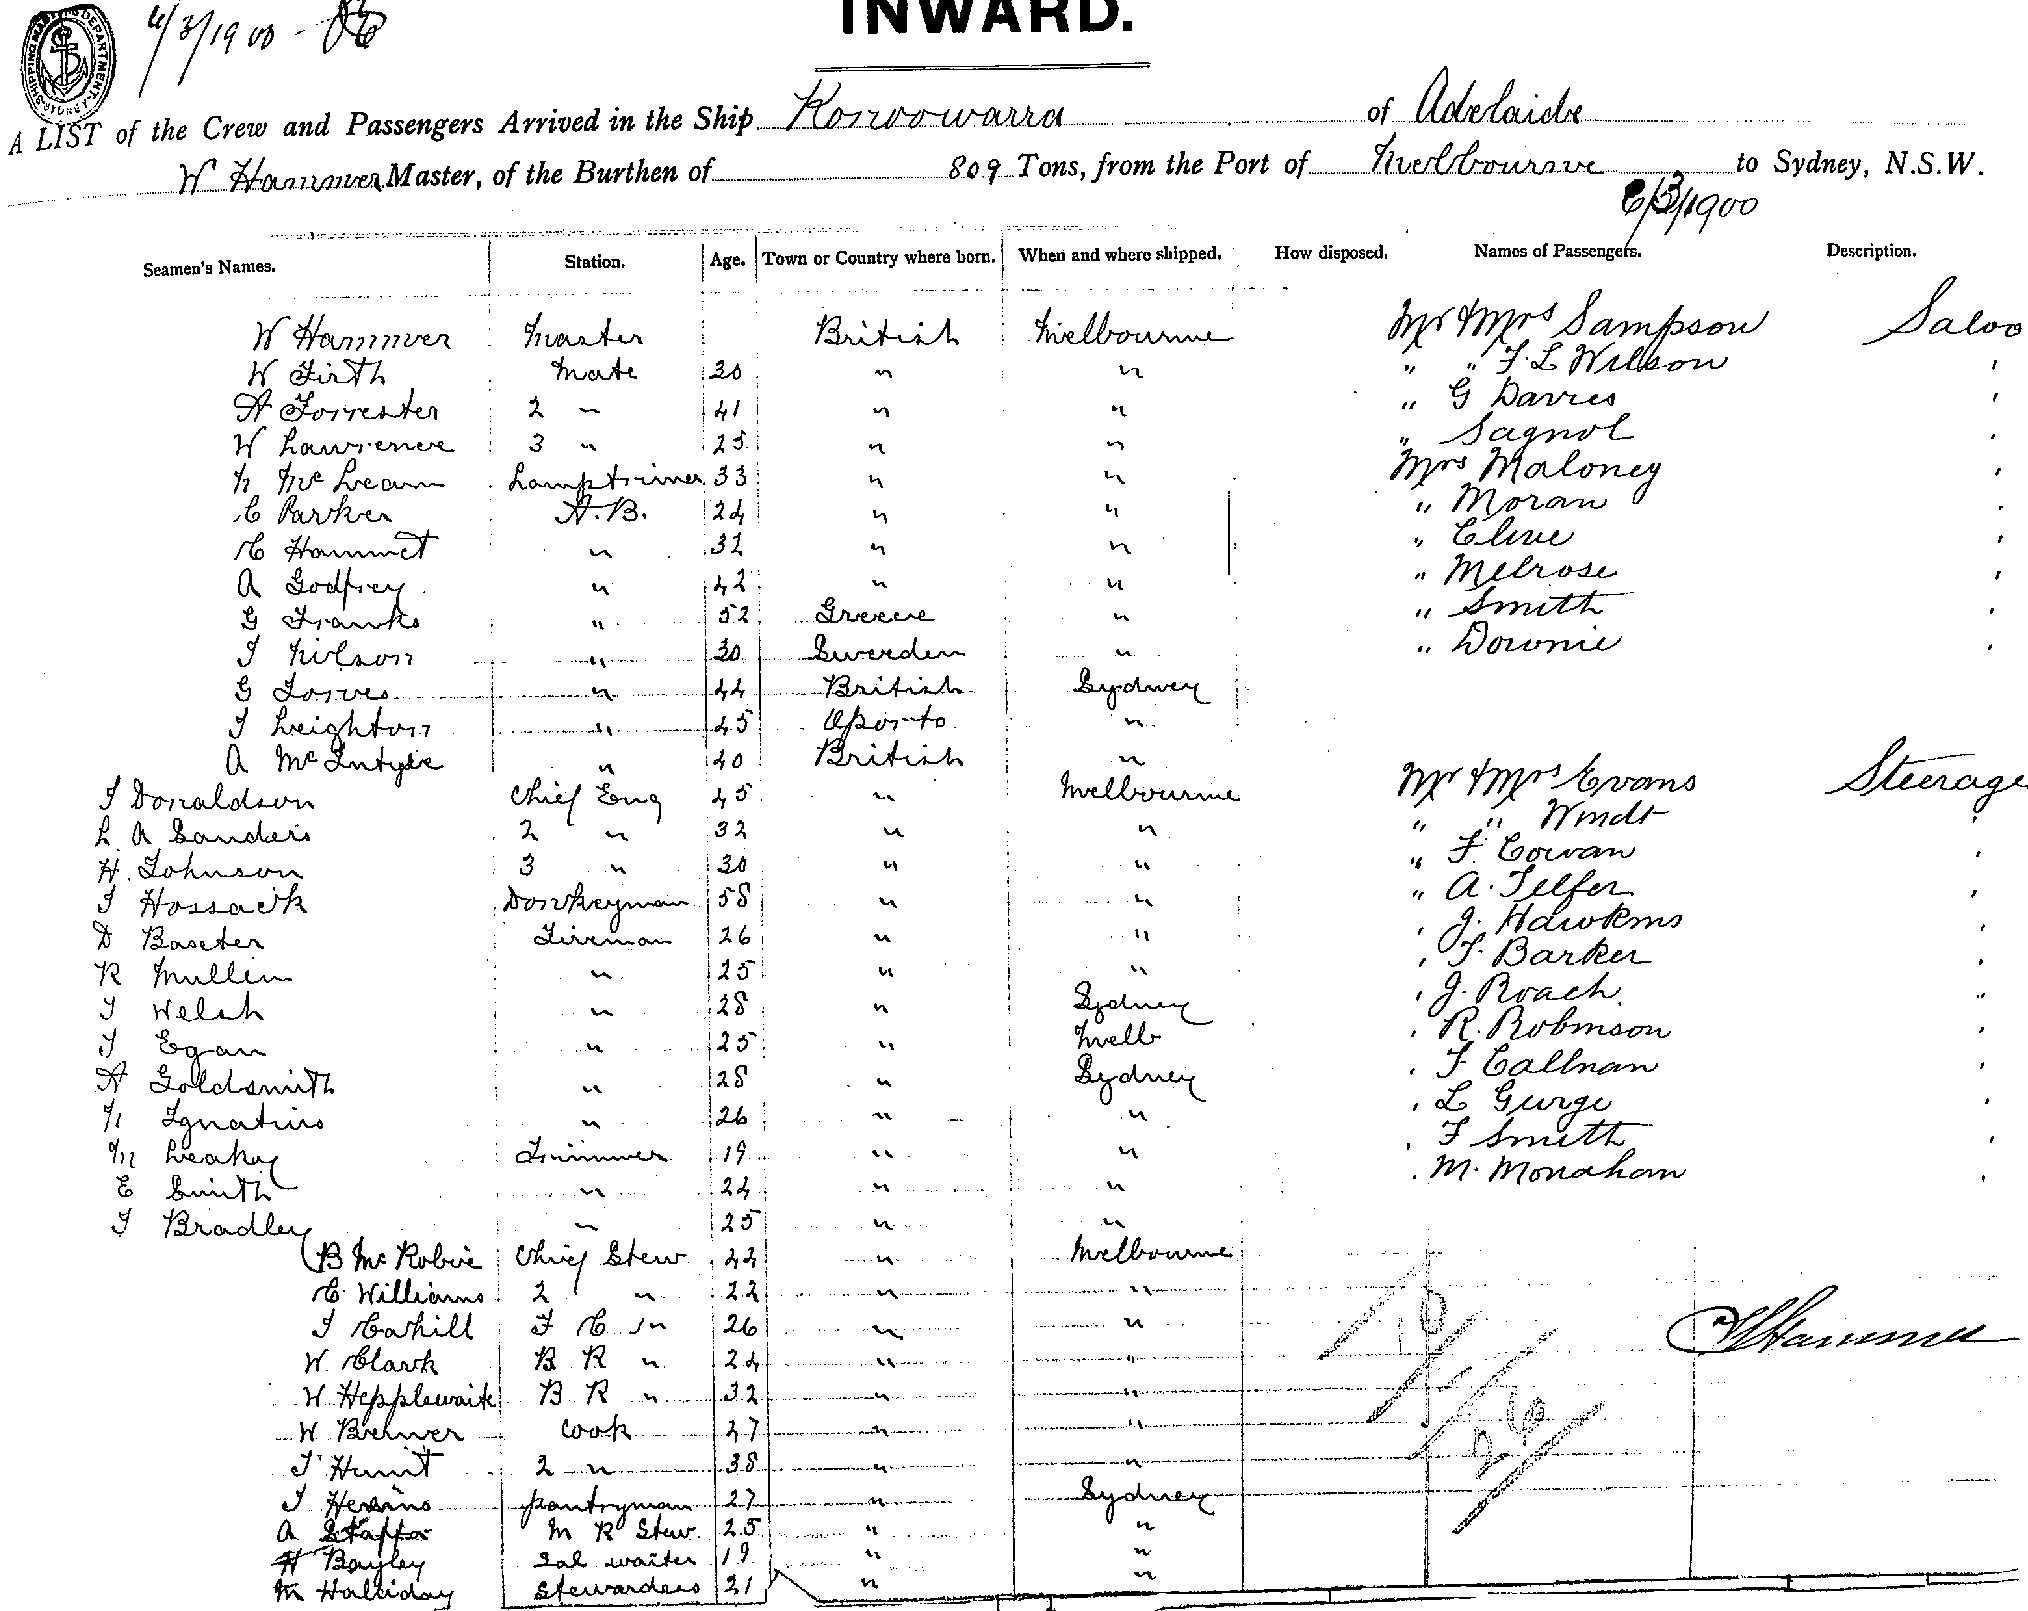 INWARD.
6/3/1900
A LIST of the Crew and Passengers Arrived in the Ship Konoowarra of Adelaide
W Hammer Master, of the Burthen of 809 Tons, from the Port of Melbourne to Sydney, N.S.W.
6/3/1900
Seamen's Names. Station. Age. Town or Country where born. When and where shipped. How disposed. Names of Passengers. Description.
W Hammer Master British Melbourne Mr & Mrs Sampson Saloo
W Firth Mate 30 " " " " F. L Wilson
A Forrester 2 " 41 " " " G Davies
W Lawrence 3 " 25 " " " Sagnol
N McLean Lamptrimer 33 " " Mrs Maloney
C Parker A.B. 24 " " " Moran
C Hammet " 32 " " " Clive
A Godfrey " 42 " " " Melrose
G Franks " 52 Greece " " Smith
J Nilson " 30 Sweeden " " Downie
G Jones " 44 British Sydney
J Leighton " 45 Oporto "
A McIntyre " 40 British "
J Donaldson Chief Eng 45 " Melbourne Mr & Mrs Evans Steerage
L A Sanders 2 " 32 " " " " Windt
H. Johnson 3 " 30 " " " F. Cowan
J Hossack Donkeyman 58 " " " A. Telfer
D Baxter Fireman 26 " " J. Hawkins
R Mullin " 25 " " T. Barker
J Welsh " 28 " Sydney J. Roach
J Egan " 25 " Melb R. Robinson
A Goldsmith " 28 " Sydney F Callnan
N Ignatius " 26 " " L Gurge
M Leahy Trimmer 19 " " F Smith
E Smith " 24 " " M. Monaham
J Bradley " 25 " "
B McRobie Chief Stew 44 " Melbourne
C Williams 2 " 22 " "
J Cahill F C " 26 " "
W. Clark B R " 24 " "
W Hepplewaite B R " 32 " "
W Brewer Cook 47 " "
J Hunt 2 " 38 " "
J pantryman 27 " Sydney
A M R Stew 25 " "
H Bayley Sal waiter 19 " "
M Halliday Stewardess 21 " "
W Hammer